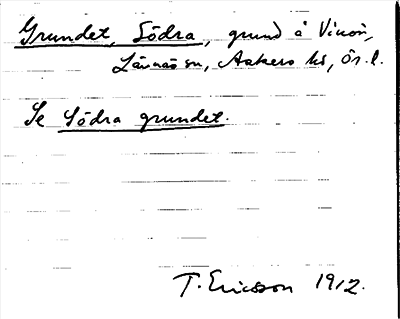 Grundet, Södra, grund å Vinön,
Lännäs sn, Askers hd, Ör. l.
Se Södra grundet.
T. Ericsson 1912.